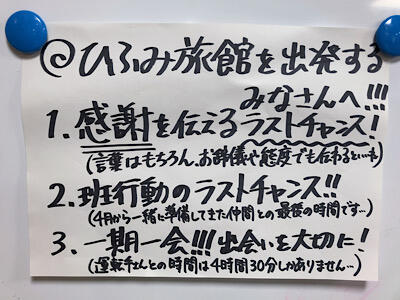 @ひふみ旅館を出発する
みなさんへ!!!
1.感謝を伝えるラストチャンス!
(言葉はもちろん、お辞儀や態度でも伝わるといいね)
2.班行動のラストチャンス!!
(4月から一緒に準備してきた仲間との最後の時間です…)
3.一期一会!!!出会いを大切に!
(運転手さんとの時間は4時間30分しかありません…)